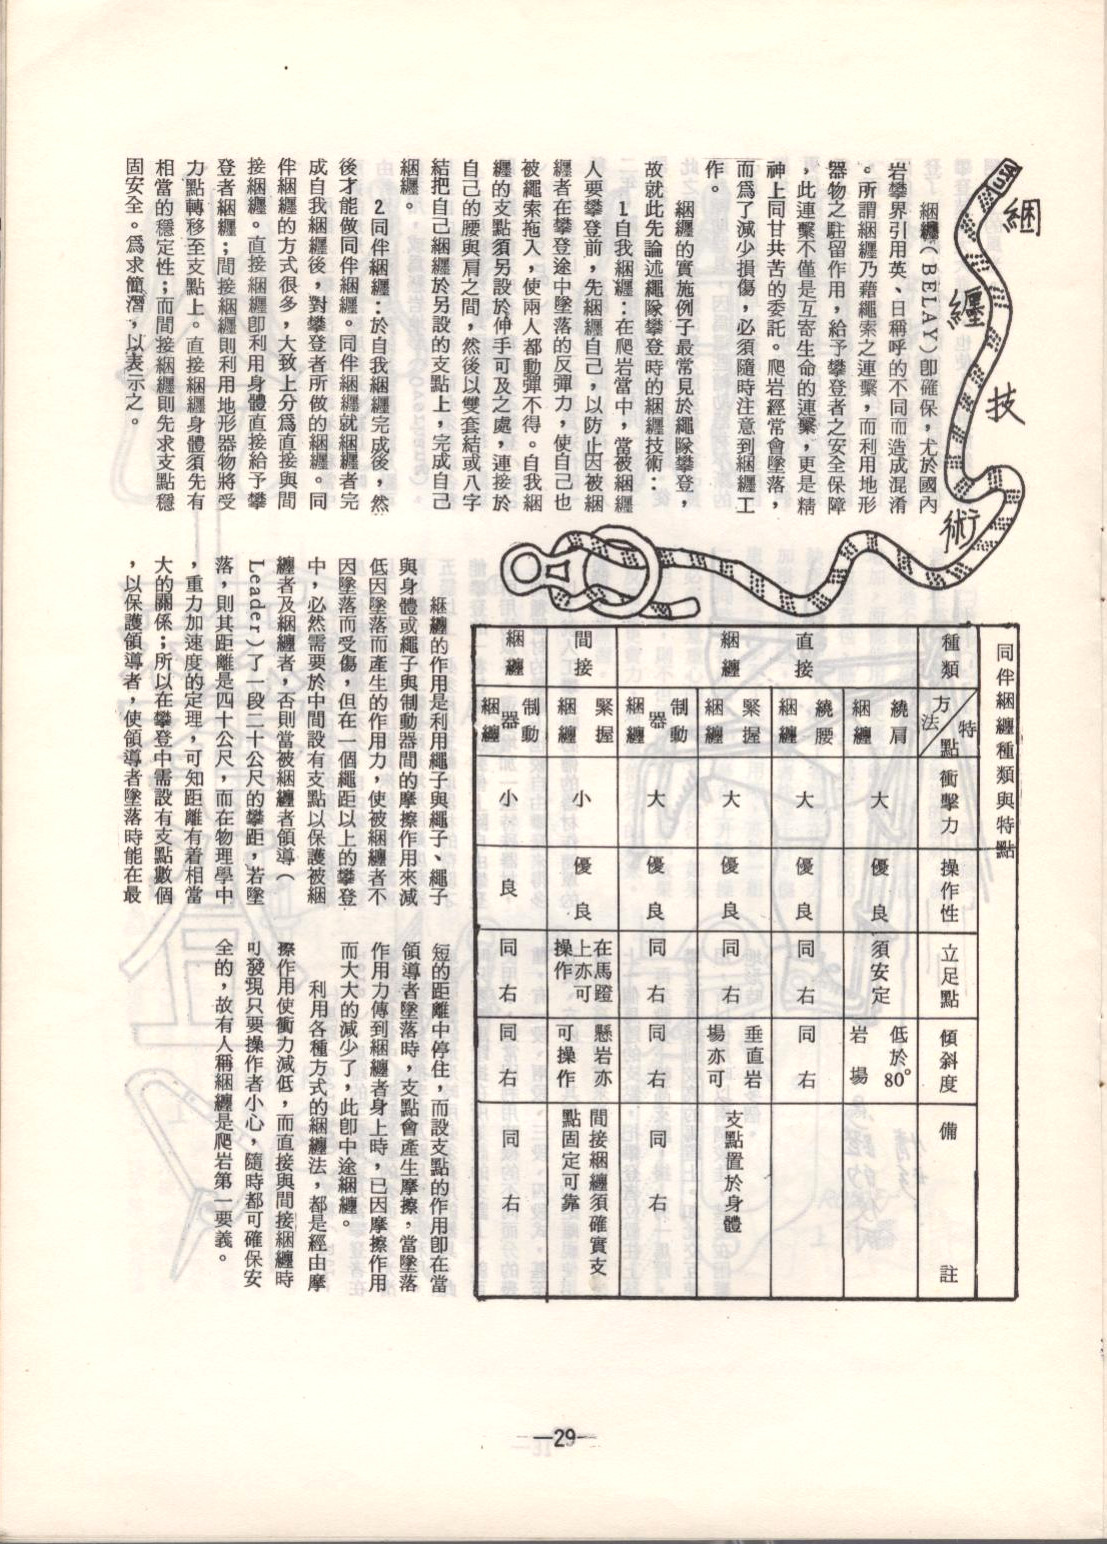 綑纏技術
USA
綑纏(BELAY)卽確保,尤於國內
岩攀界引用英、日稱呼的不同而造成混淆
。所謂綑纏乃藉繩索之連繫,而利用地形
器物之駐留作用,給予攀登者之安全保障
,此連繫不僅是互寄生命的連繫,更是精
神上同甘共苦的委託。爬岩經常會墜落,
而爲了減少損傷,必須隨時注意到綑纏工
作。
綑纏的實施例子最常見於繩隊攀登,
故就此先論述繩隊攀登時的綑纏技術:
1自我綑纏:在爬岩當中,當被綑纏
人要攀登前,先綑纏自己,以防止因被綑
纏者在攀登途中墜落的反彈力,使自己也
被繩索拖入,使兩人都動彈不得。自我綑
纏的支點須另設於伸手可及之處,連接於
自己的腰與肩之間,然後以雙套結或八字
結把自己綑纏於另設的支點上,完成自己
綑纏。
2同伴綑纏:於自我綑纏完成後,然
後才能做同伴綑纏。同伴綑纏就綑纏者完
成自我綑纏後,對攀登者所做的綑纏。同
伴綑纏的方式很多,大致上分爲直接與間
接綑纏。直接綑纏卽利用身體直接給予攀
登者綑纏;間接綑纏則利用地形器物將受
力點轉移至支點上。直接綑纏身體須先有
相當的穩定性;而間接綑纏則先求支點穩
固安全。爲求簡潛,以表示之。
同伴綑纏種類與特點
種類 方法 特點 衝擊力 操作性 立足點 傾斜度 備註
直接綑纏 繞肩綑纏 大 優良 須安定 低於80°岩場
繞腰綑纏 大 優良 同右 同右
緊握綑纏 大 優良 同右 垂直岩場亦可 支點置於身體
制動器綑纏 大 優良 同右 同右 同右
間接綑纏 緊握綑纏 小 優良 在馬蹬上亦可操作 懸岩亦可操作 間接綑纏須確實支點固定可靠
制動器綑纏 小 良 同右 同右 同右
綑纏的作用是利用繩子與繩子、繩子
與身體或繩子與制動器間的摩擦作用來減
低因墜落而產生的作用力,使被綑纏者不
因墜落而受傷,但在一個繩距以上的攀登
中,必然需要於中間設有支點以保護被綑
纏者及綑纏者,否則當被綑纏者領導(
Leader)了一段二十公尺的攀距,若墜
落,則其距離是四十公尺,而在物理學中
,重力加速度的定理,可知距離有着相當
大的關係;所以在攀登中需設有支點數個
,以保護領導者,使領導者墜落時能在最
短的距離中停住,而設支點的作用卽在當
領導者墜落時,支點會產生摩擦,當墜落
作用力傳到綑纏者身上時,已因摩擦作用
而大大的減少了,此卽中途綑纏。
利用各種方式的綑纏法,都是經由摩
擦作用使衝力減低,而直接與間接綑纏時
可發現只要操作者小心,隨時都可確保安
全的,故有人稱綑纏是爬岩第一要義。
—29—